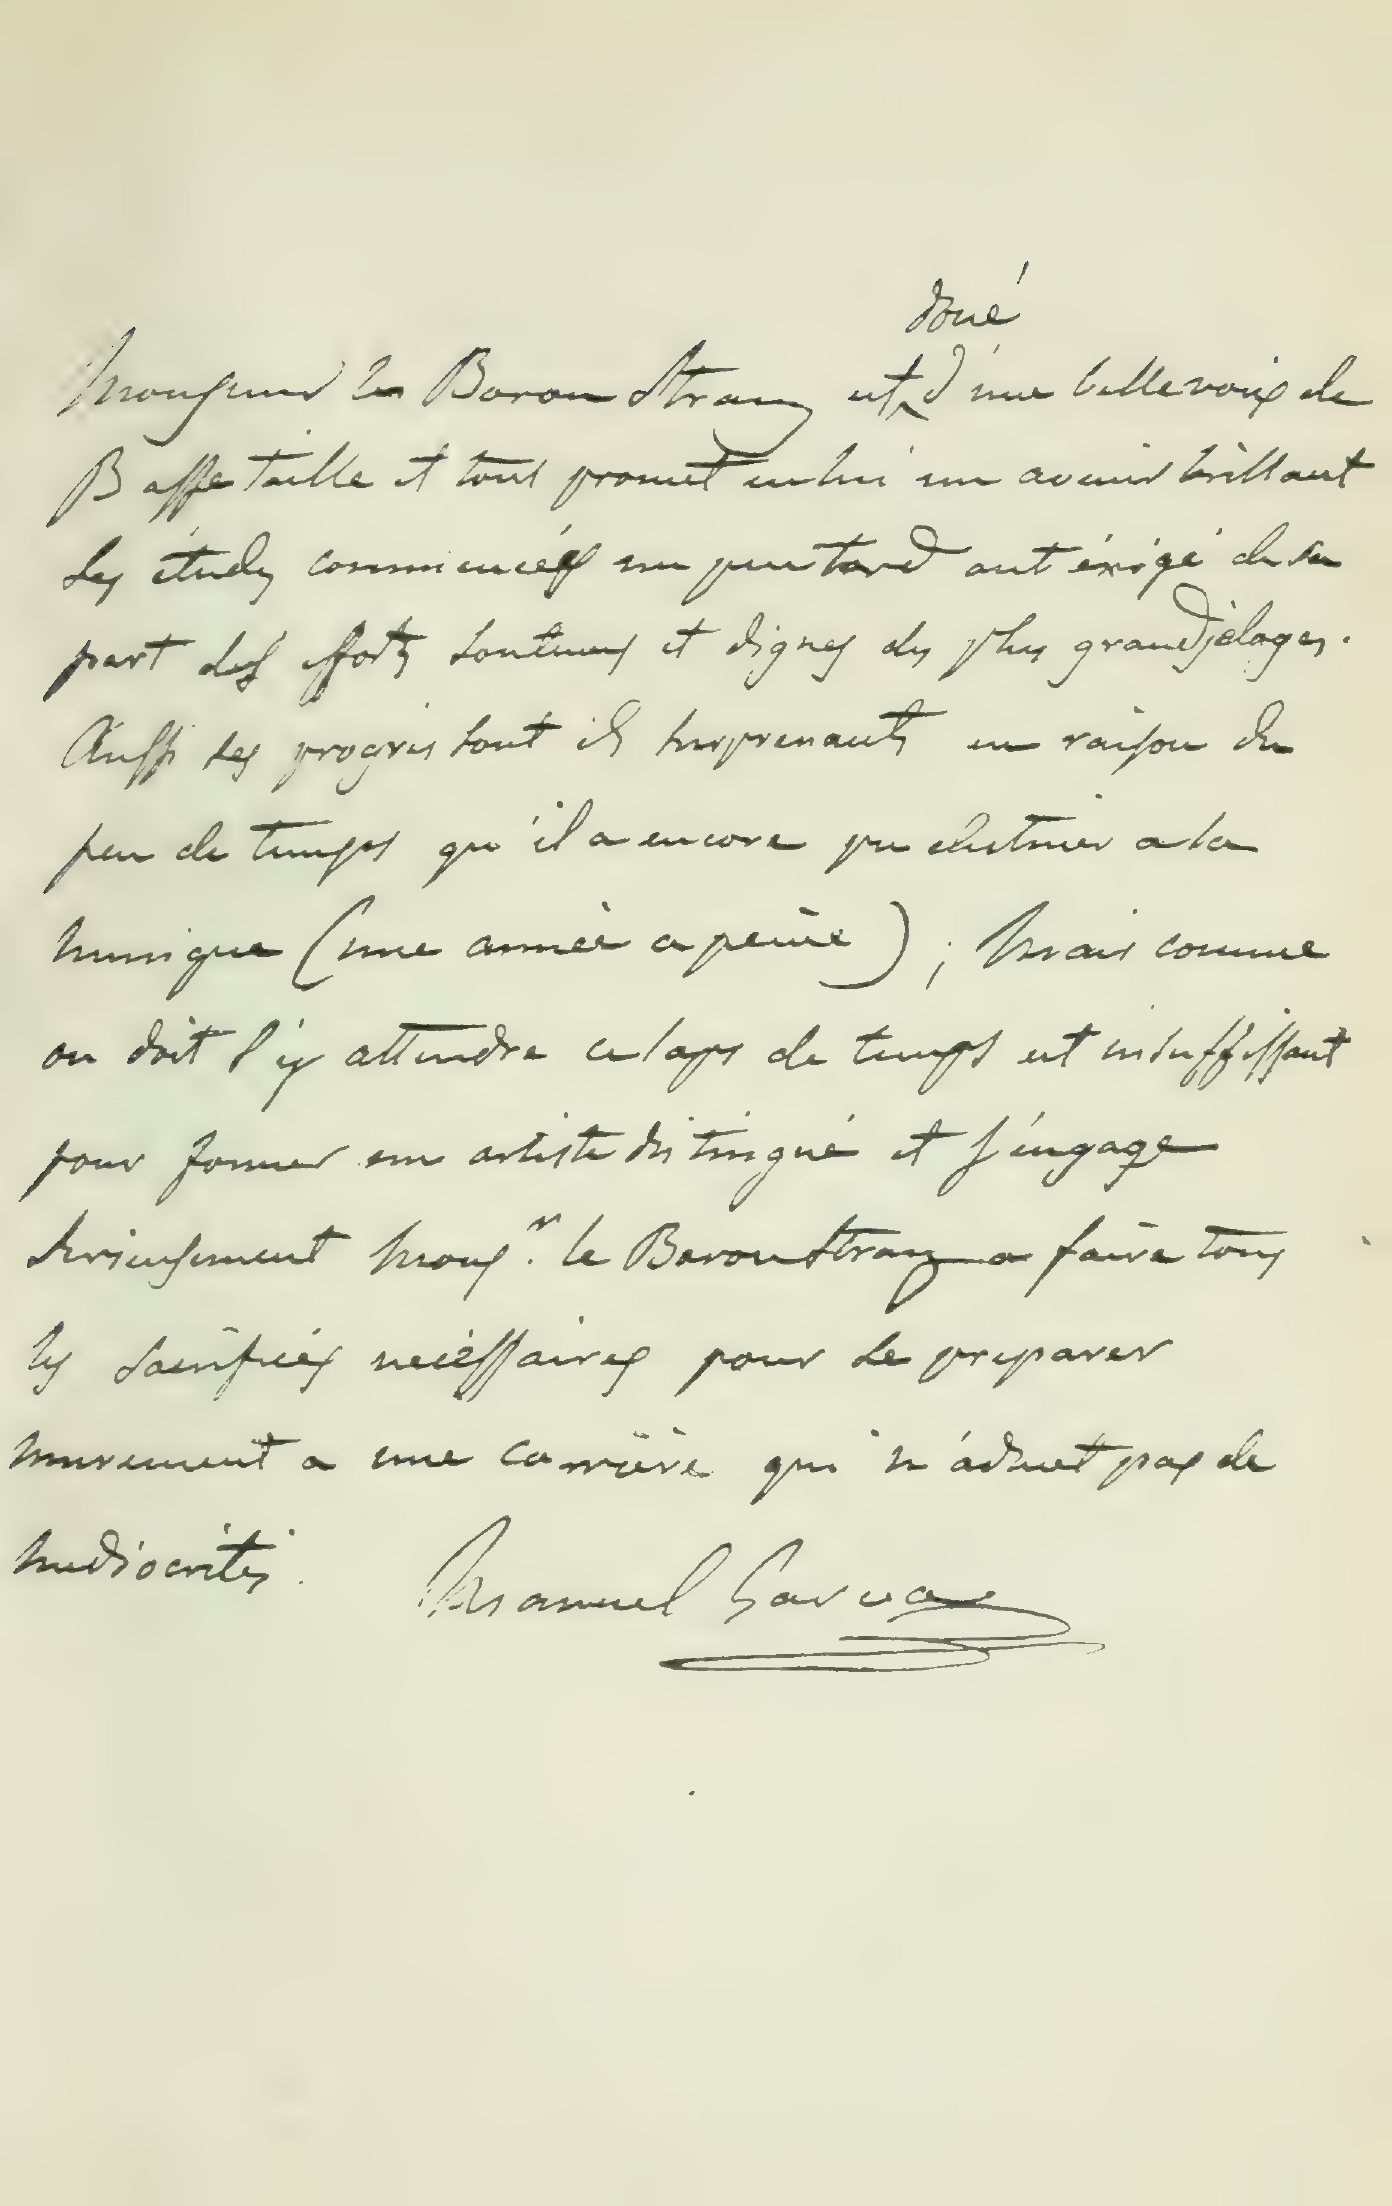 doué
Monsieur le Baron Stranz est d'une belle voix de
Basse taille et tout promet en lui un avenir brillant
Ses études commencées un peu tard ont éxigé de sa
part des efforts soutenus et dignes des plus grands éloges.
Aussi ses progrès sont ils surprenants en raison du
peu de temps qu'il a encore pu destiner a la
musique (une année a peine); Mais comme
on doit s'y attendre ce laps de temps est insuffissant
pour former un artiste distingué et j'engage
serieusement Monsr. le Baron Stranz a faire tous
les sacrifices necéssaires pour se preparer
murement a une carrière qui n'admet pas de
mediocrités.
Manuel Garcia